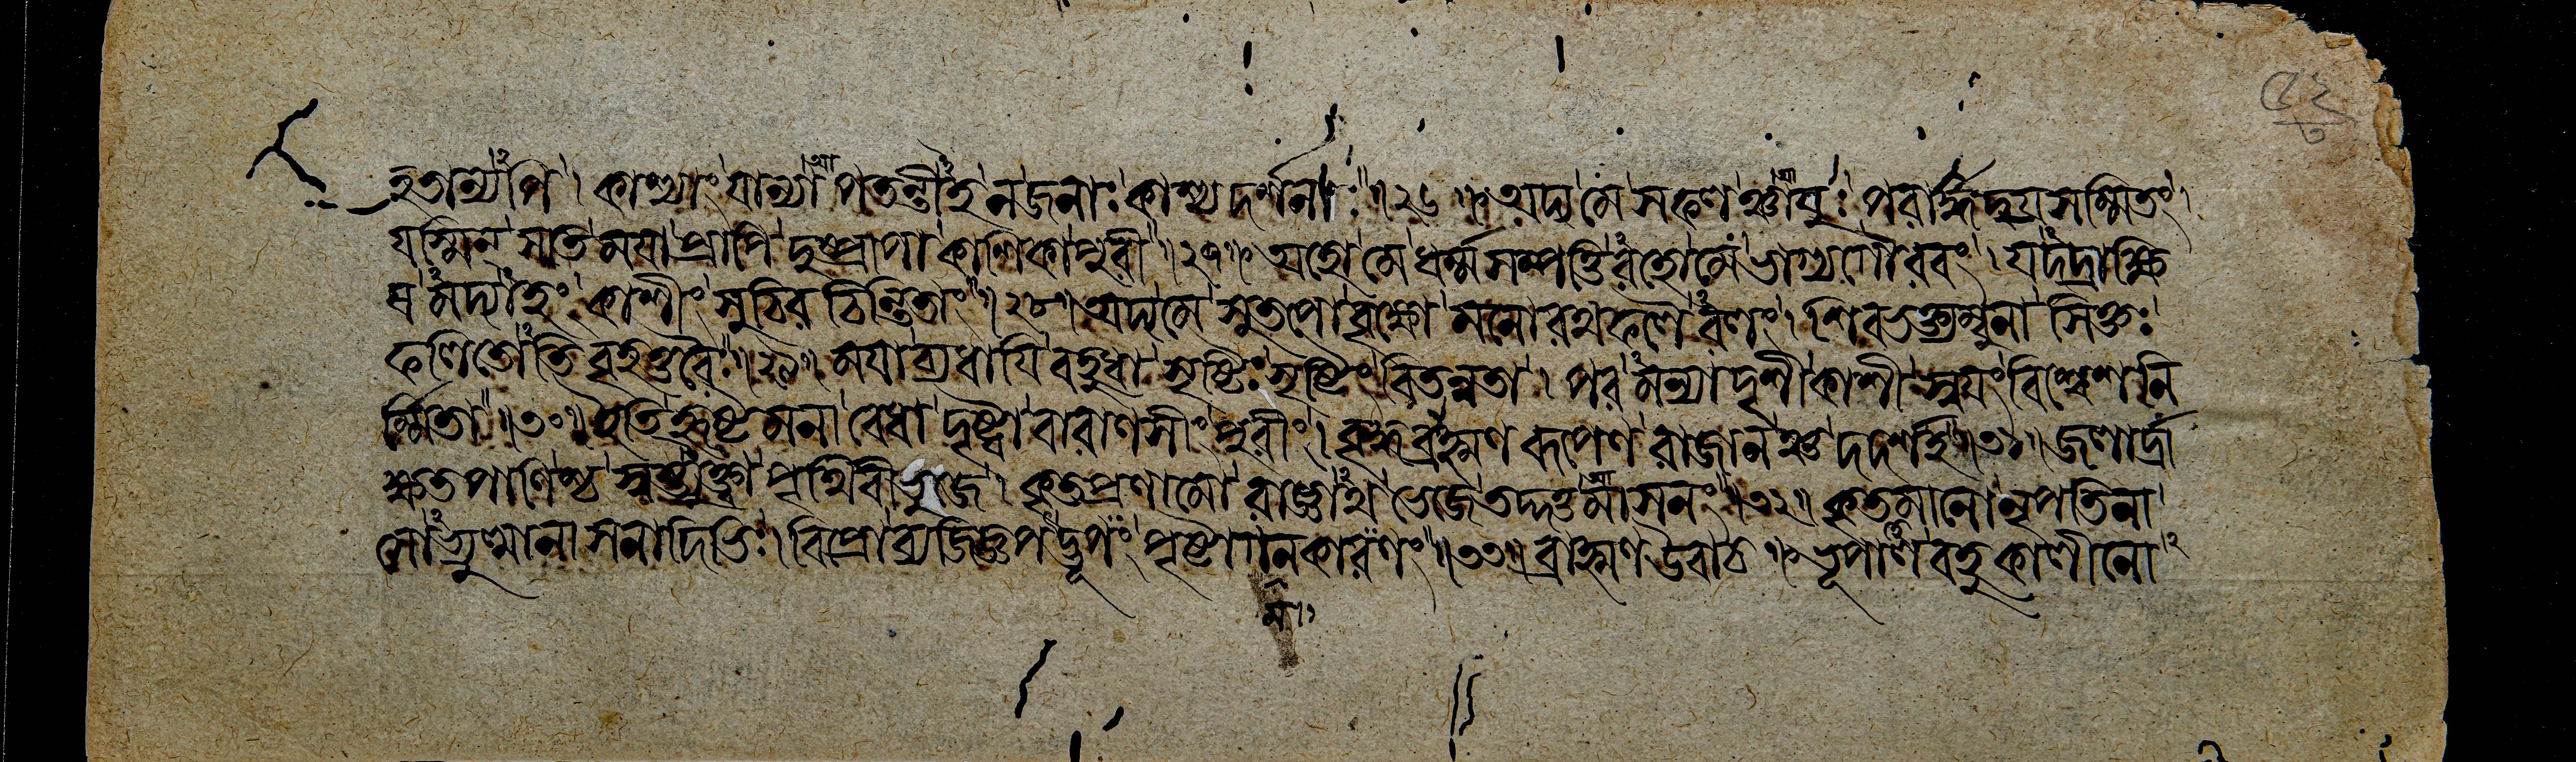 হতান্যাপি । কাশ্যাং যান্যা পতন্তীহ ন জনাঃ কাশ্য দর্শনাঃ ॥ ২৬ ॥ অদ্য মে সফলঞ্চায়ুঃ পরার্দ্ধদ্বয়সম্মিতং ।
যস্মিন্ সতি ময়া প্রাপি দুষ্প্রাপা কাশিকাপুরী ॥ ২৭ ॥ অহো মে ধর্ম্মসম্পত্তিরহো মে ভাগ্যগৌরবং । যদদ্রাক্ষি
ষমদ্যাহং কাশীং সুচিরচিন্তিতাং ॥ ২৮ ॥ অদ্য মে সুতপোবৃক্ষো মনোরথফলৈরলং । শিবভক্ত্যম্বুনা সিক্তঃ
ফলিতোতি বৃহত্তরৈঃ ॥ ২৯ ॥ ময়া ব্যধায়ি বহুধা সৃষ্টিঃ সৃষ্টিং বিতন্বতা । পরমন্যাদৃশী কাশী স্বয়ং বিশ্বেশনি
র্ম্মিতা ॥ ৩০ ॥ ইতি হৃষ্টমনা বেধা দৃষ্ট্বা বারাণসীং পুরীং । বৃদ্ধব্রাহ্মণরূপেণ রাজানঞ্চ দদর্শ হ ॥ ৩১ ॥ জলার্দ্রা
ক্ষতপাণিশ্চ স্বস্ত্যুক্ত্বা পৃথিবীভুজে । কৃতপ্রণামো রাজ্ঞাথ ভেজে তদ্দত্তমাসনং ॥ ৩২ ॥ কৃতমানো নৃপতিনা
সোভ্যুত্থানাসনাদিভিঃ । বিপ্রো ব্যজিজ্ঞপদ্ভূপং পৃষ্টাগমনকারণং ॥ ৩৩ ॥ ব্রাহ্মণ উবাচ ॥ ভূপাল বহুকালীনো
ম